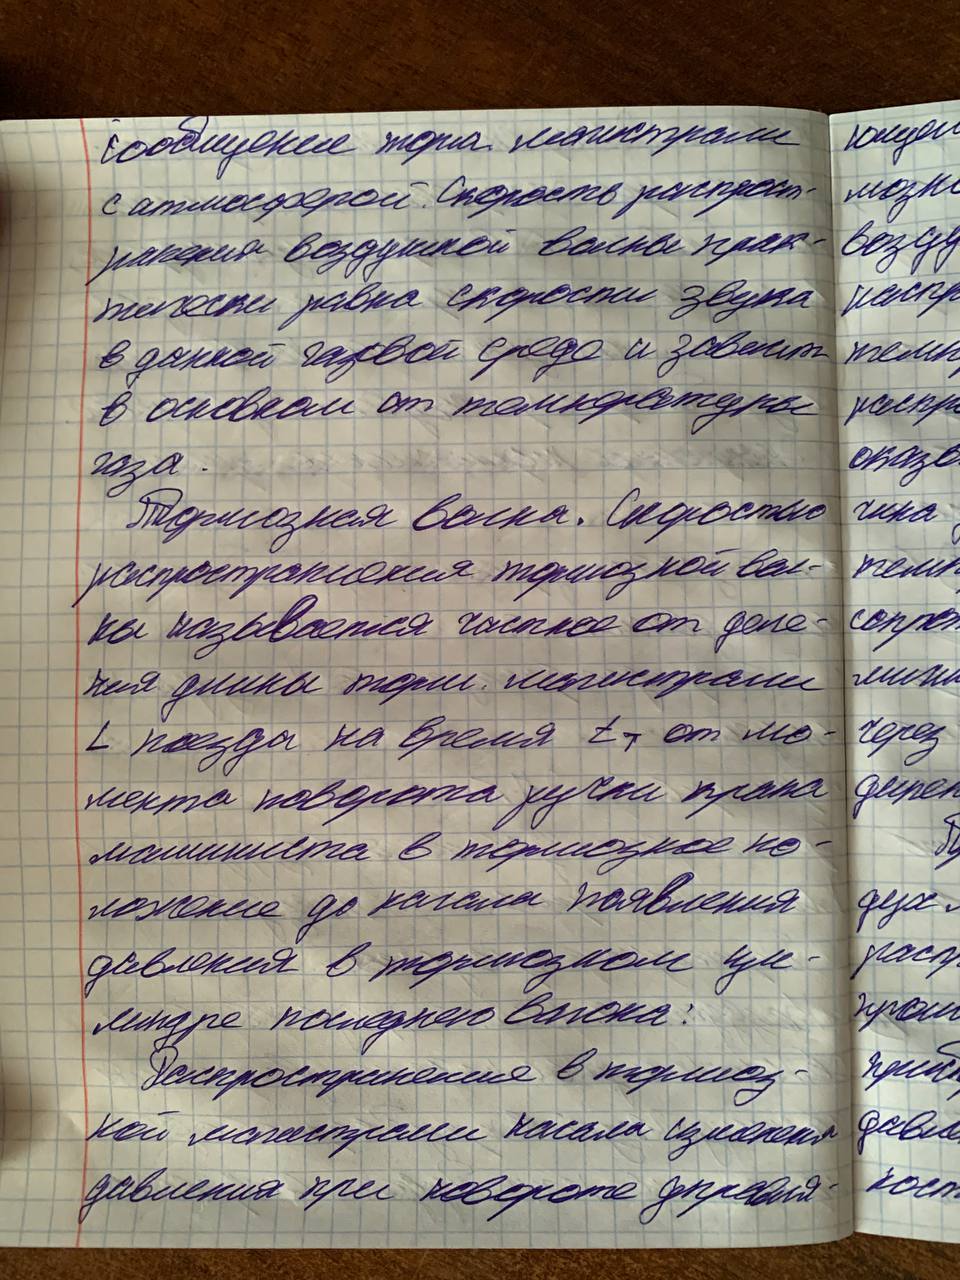 сообщение торм. магистрали
с атмосферой. Скорость распрост-
ранения воздушной волны прак-
тически равна скорости звука
в данной газовой среде и зависит
в основном от температуры
газа.
Тормозная волна. Скоростью
распространения тормозной вол-
ны называется частное от деле-
ния длины торм. магистрали
L поезда на время tт от мо-
мента поворота ручки крана
машиниста в тормозное по-
ложение до начала появления
давления в тормозном ци-
линдре последнего вагона:
Распространение в тормоз-
ной магистрали начала изменения
давления при повороте управля-
возду
распр
темп
распр
оказы
чина
темп
сопро
через
духа
распр
давле
ност